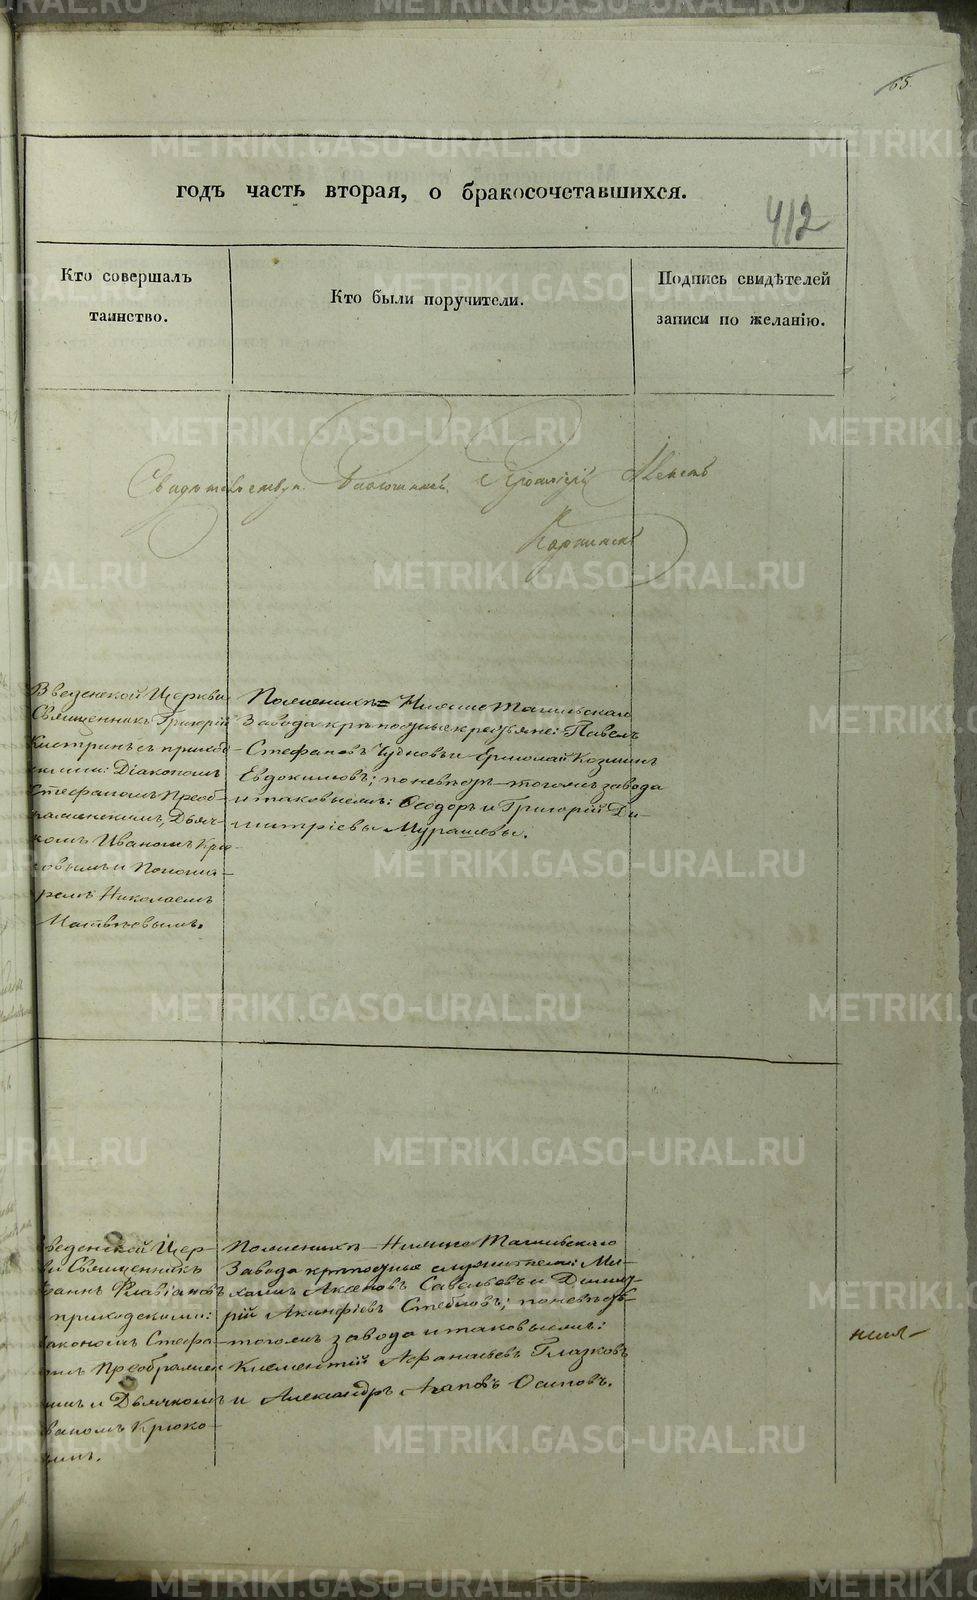 65.
годъ часть вторая, о бракосочетавшихся.
412
Кто совершалъ
таинство.
Кто были поручители.
Подпись свидѣтелей
записи по желанію.
Благочинный
Введенской Церкви
Священникъ Григорій
съ приход-
скими: Діакономъ
Стефаномъ Преоб-
раженскимъ, Дьяч-
комъ Иваномъ Крю-
ковымъ и Понома-
ремъ Николаемъ
Матвѣевымъ.
По женихѣ Нижне Тагильскаго
Завода крѣпостные крестьяне: Павелъ
Стефановъ Чудновъ и Ермолай Козминъ
Евдокимовъ; по невѣстѣ тогожъ завода
и таковыежъ: Ѳеодоръ и Григорій Ди-
митріевы Мурашевы.
Введенской Цер-
кви Священникъ
Іоаннъ Флавіановъ
приходскими:
Діакономъ Стефа-
номъ Преображен-
скимъ и Дьячкомъ
Иваномъ Крюко-
вымъ.
По женихѣ Нижне Тагильскаго
Завода крѣпостные служители: Ми-
хаилъ Аксеновъ Савельевъ и Димит-
рій Акинфіевъ Стебловъ; по невѣстѣ
тогожъ завода и таковыежъ:
Климентій Афанасьевъ Глазковъ
и Александръ Агаповъ Осиповъ.
METRIKI.GASO-URAL.RU